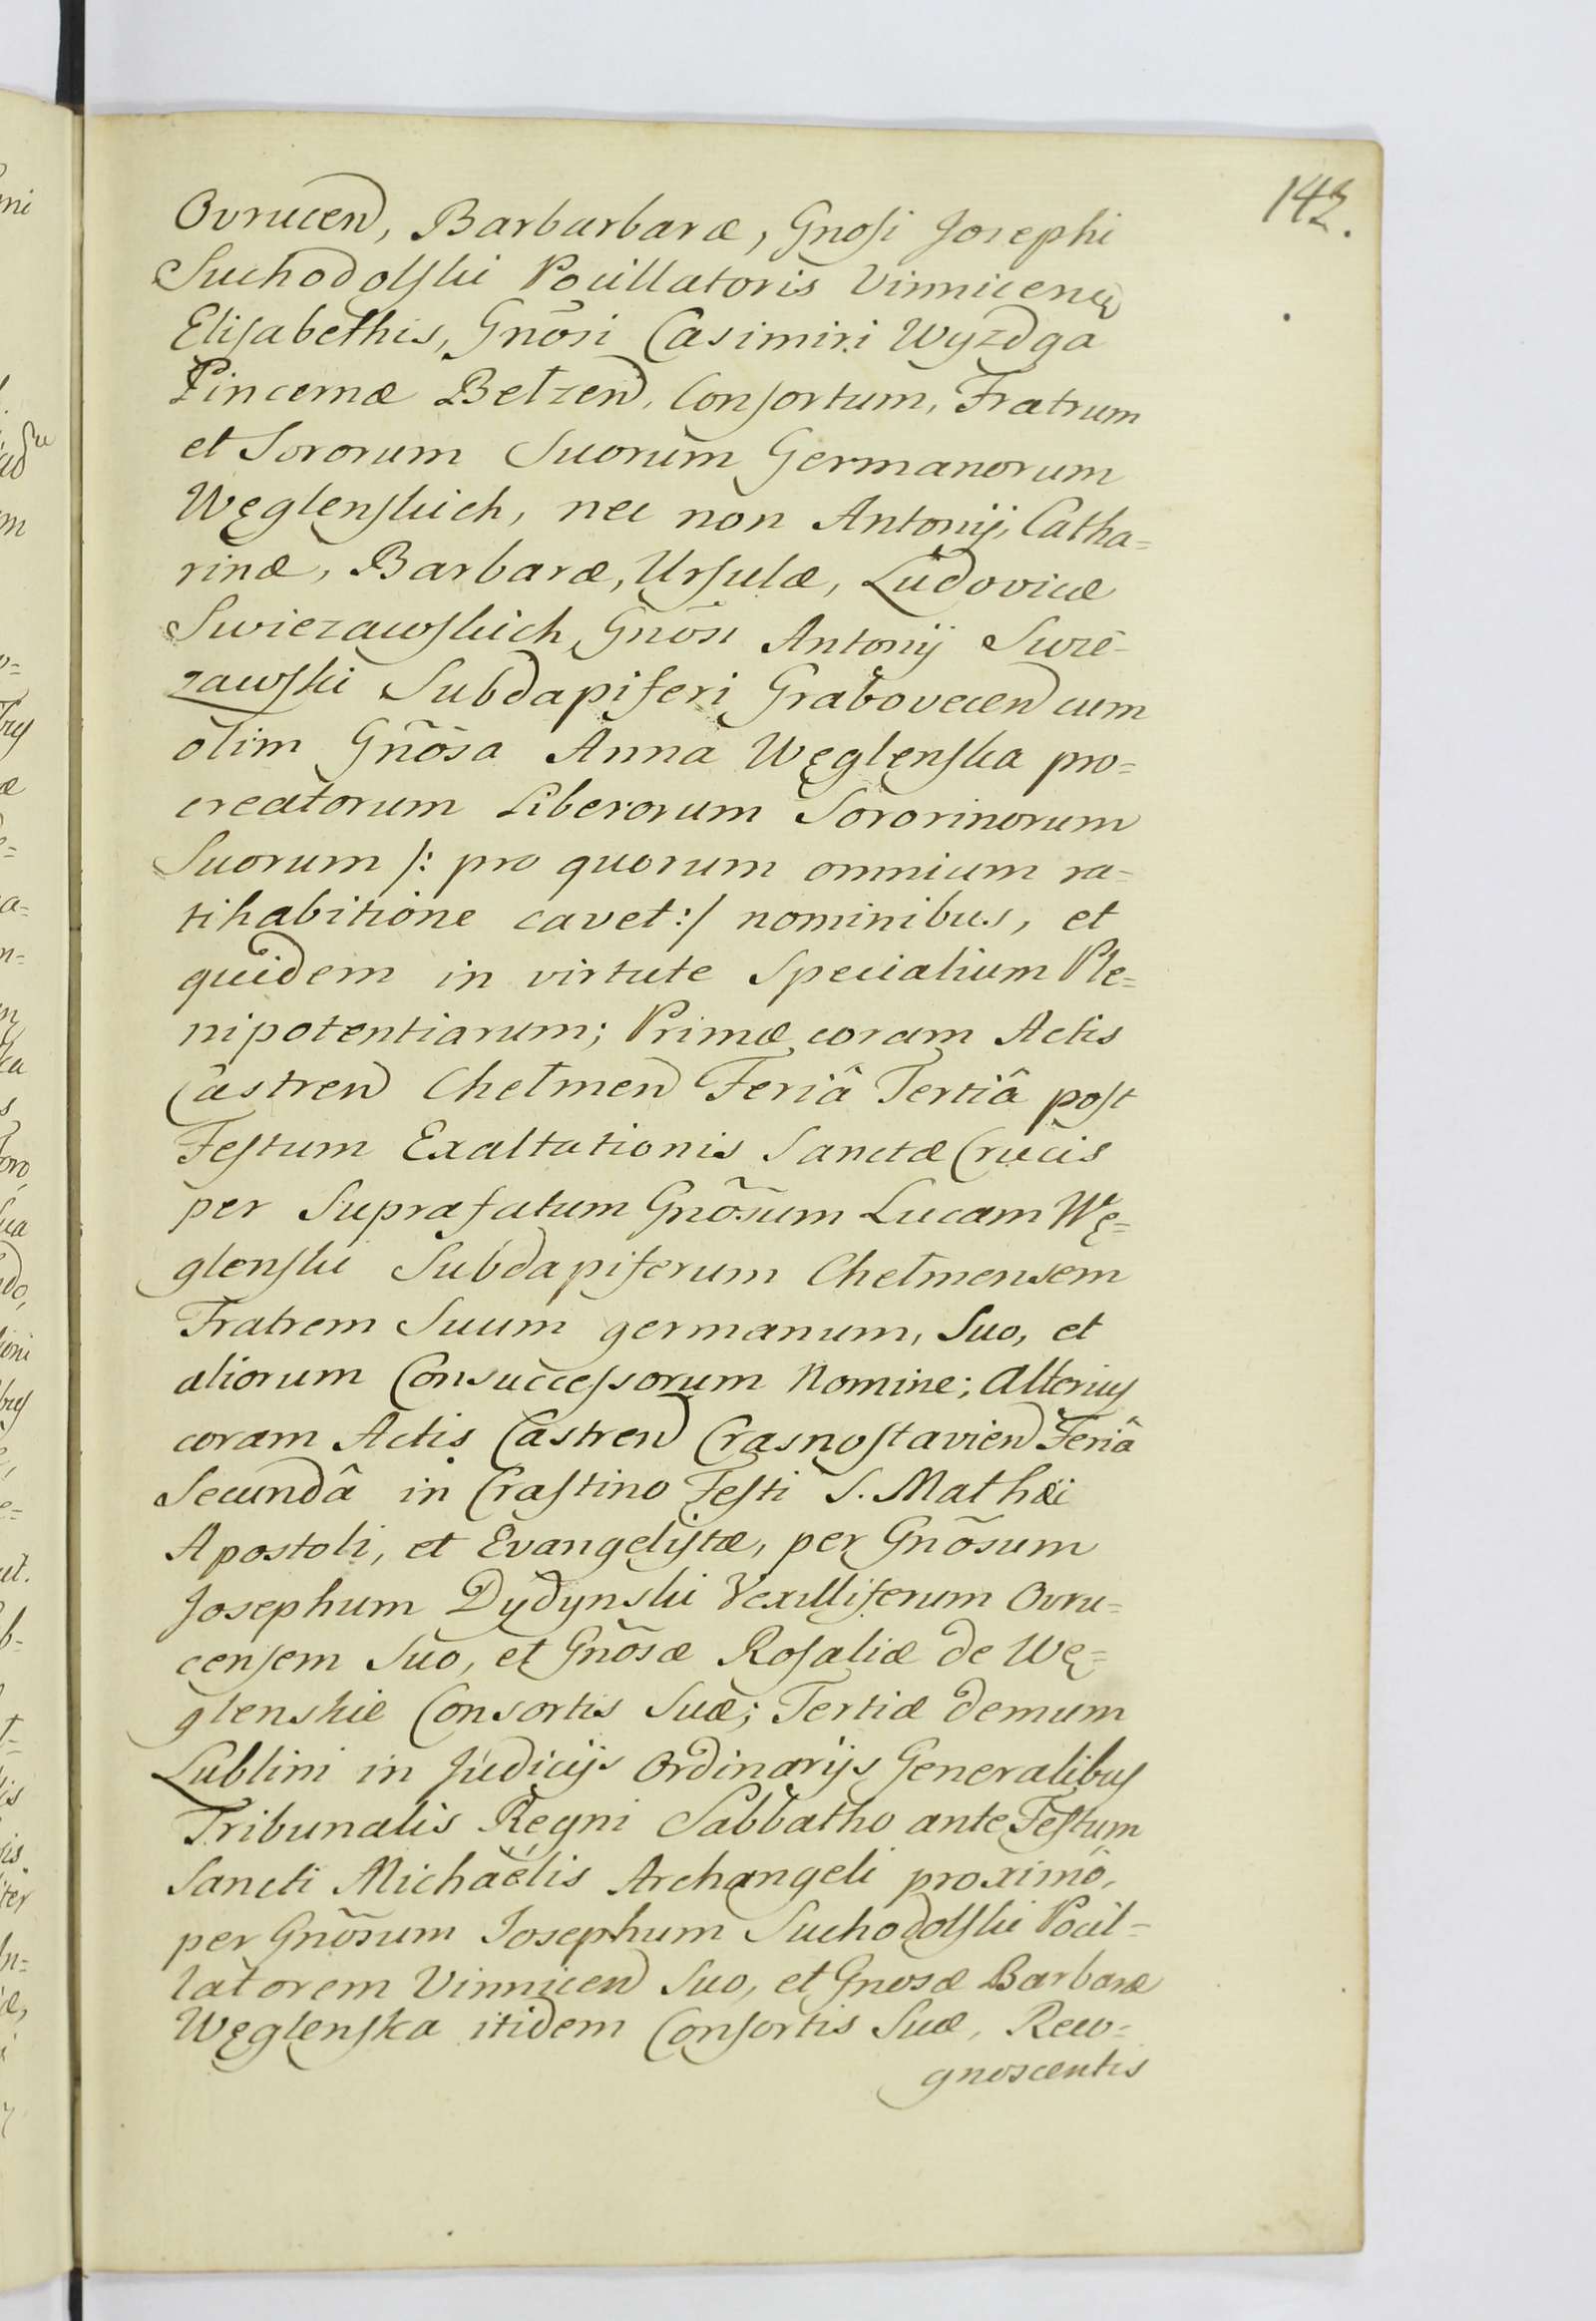 142.
Ovrucen, Barbarbaræ, Gnosi Josephi
Suchodolski Pocillatoris Vinnicen
Elisabethis, Gnõsi Casimiri Wyzdga
Pincernæ Bełzen, Consortum, Fratrum
et Sororum Suorum Germanorum
Węglenskich, nec non Antonij, Catha=
rinæ, Barbaræ, Ursulæ, Ludovicæ
Swiezawskich Gnõsi Antonij Swie-
zawski Subdapiferi Grabovecen cum
olim Gñõsa Anna Węglęnska pro=
creatorum Liberorum Sororinorum
Suorum /: pro quorum omnium ra=
tihabitione cavet :/ nominibus, et
quidem in virtute Specialium Ple=
nipotentiarum; Primæ coram Actis
Castren Chełmen Feriâ Tertiâ post
Festum Exaltationis Sanctæ Crucis
per Suprafatum Gnõsum Lucam Wę=
glenski Subdapiferum Chełmensem
Fratrem Suum germanum, Suo, et
aliorum Consuccessorum Nomine; Alterius
coram Actis Castren Crasnostavien Feriâ
Secundâ in Crastino Festi S. Mathæi
Apostoli, et Evangelistæ, per Gnõsum
Josephum Dydynski Vexilliferum Ovru=
censem Suo, et Gñõsæ Rosaliæ de Wę=
glenskie Consortis Suæ; Tertiæ demum
Lublini in Judicijs Ordinarijs Generalibus
Tribunalis Regni Sabbatho ante Festum
Sancti Michaëlis Archangeli proximô,
per Gnõsum Josephum Suchodolski Pocil=
latorem Vinnicen Suo, et Gnosæ Barbaræ
Węglenska itidem Consortis Suæ, Reco=
gnoscentis